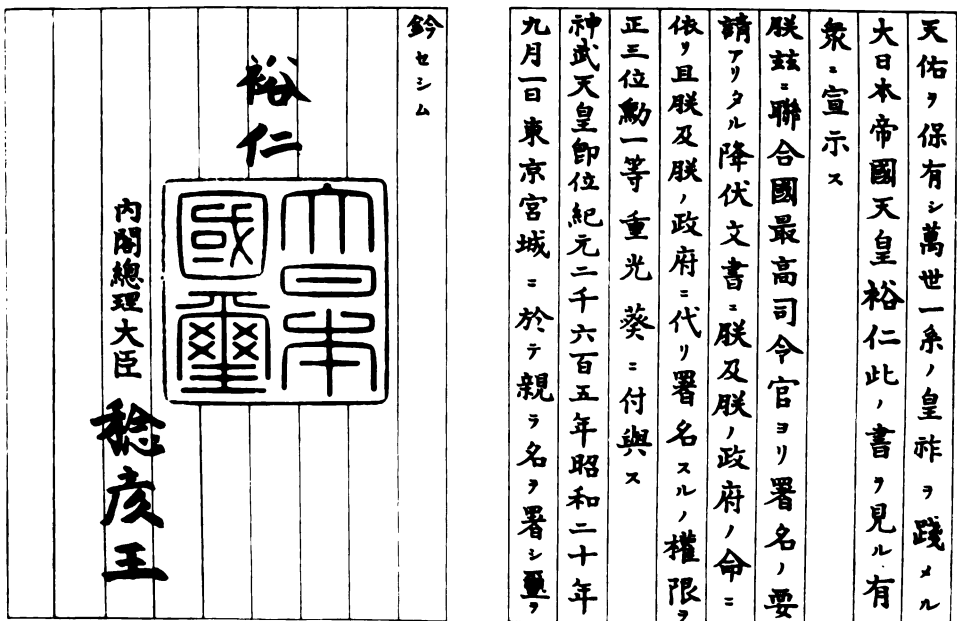 天佑ヲ保有シ萬世一系ノ皇祚ヲ踐メル
大日本帝國天皇裕仁此ノ書ヲ見ル有
衆ニ宣示ス
朕茲ニ聯合國最高司令官ヨリ署名ノ要
請アリタル降伏文書ニ朕及朕ノ政府ノ命ニ
依リ且朕及朕ノ政府ニ代リ署名スルノ權限ヲ
正三位勳一等重光葵ニ付與ス
神武天皇卽位紀元二千六百五年昭和二十年
九月一日東京宮城ニ於テ親ラ名ヲ署シ璽ヲ
鈐セシム
裕仁
大日本
國璽
內閣總理大臣 稔彥王